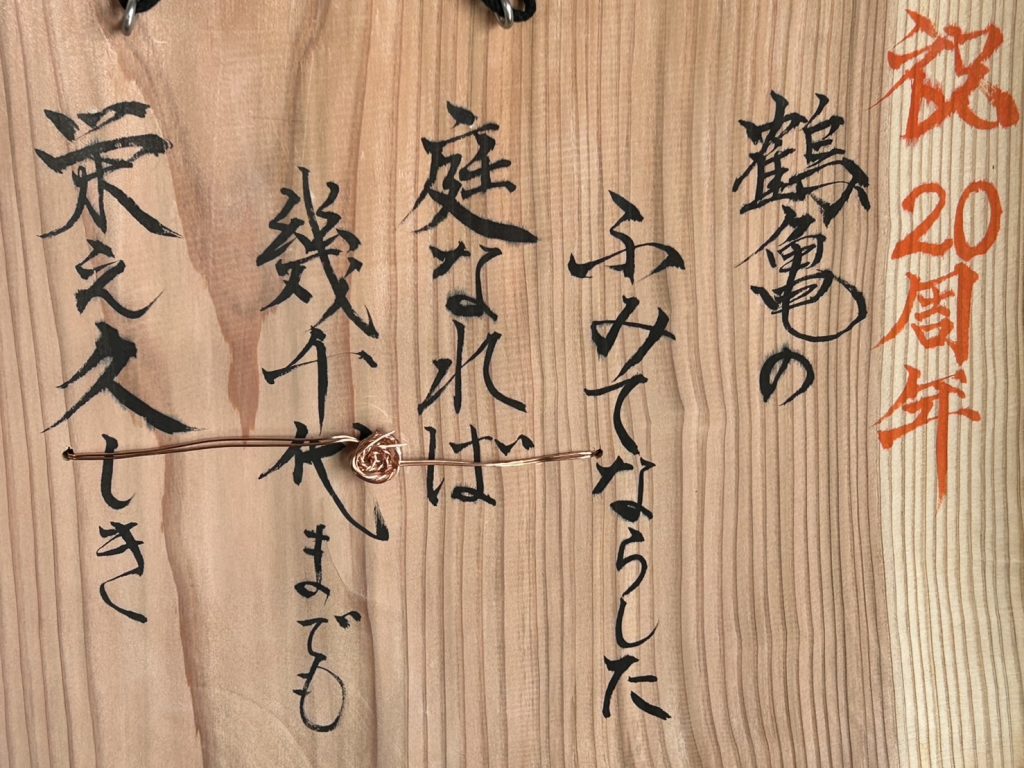 祝 20周年
鶴亀の
ふみてならした
庭なれば
幾千代までも
栄え久しき